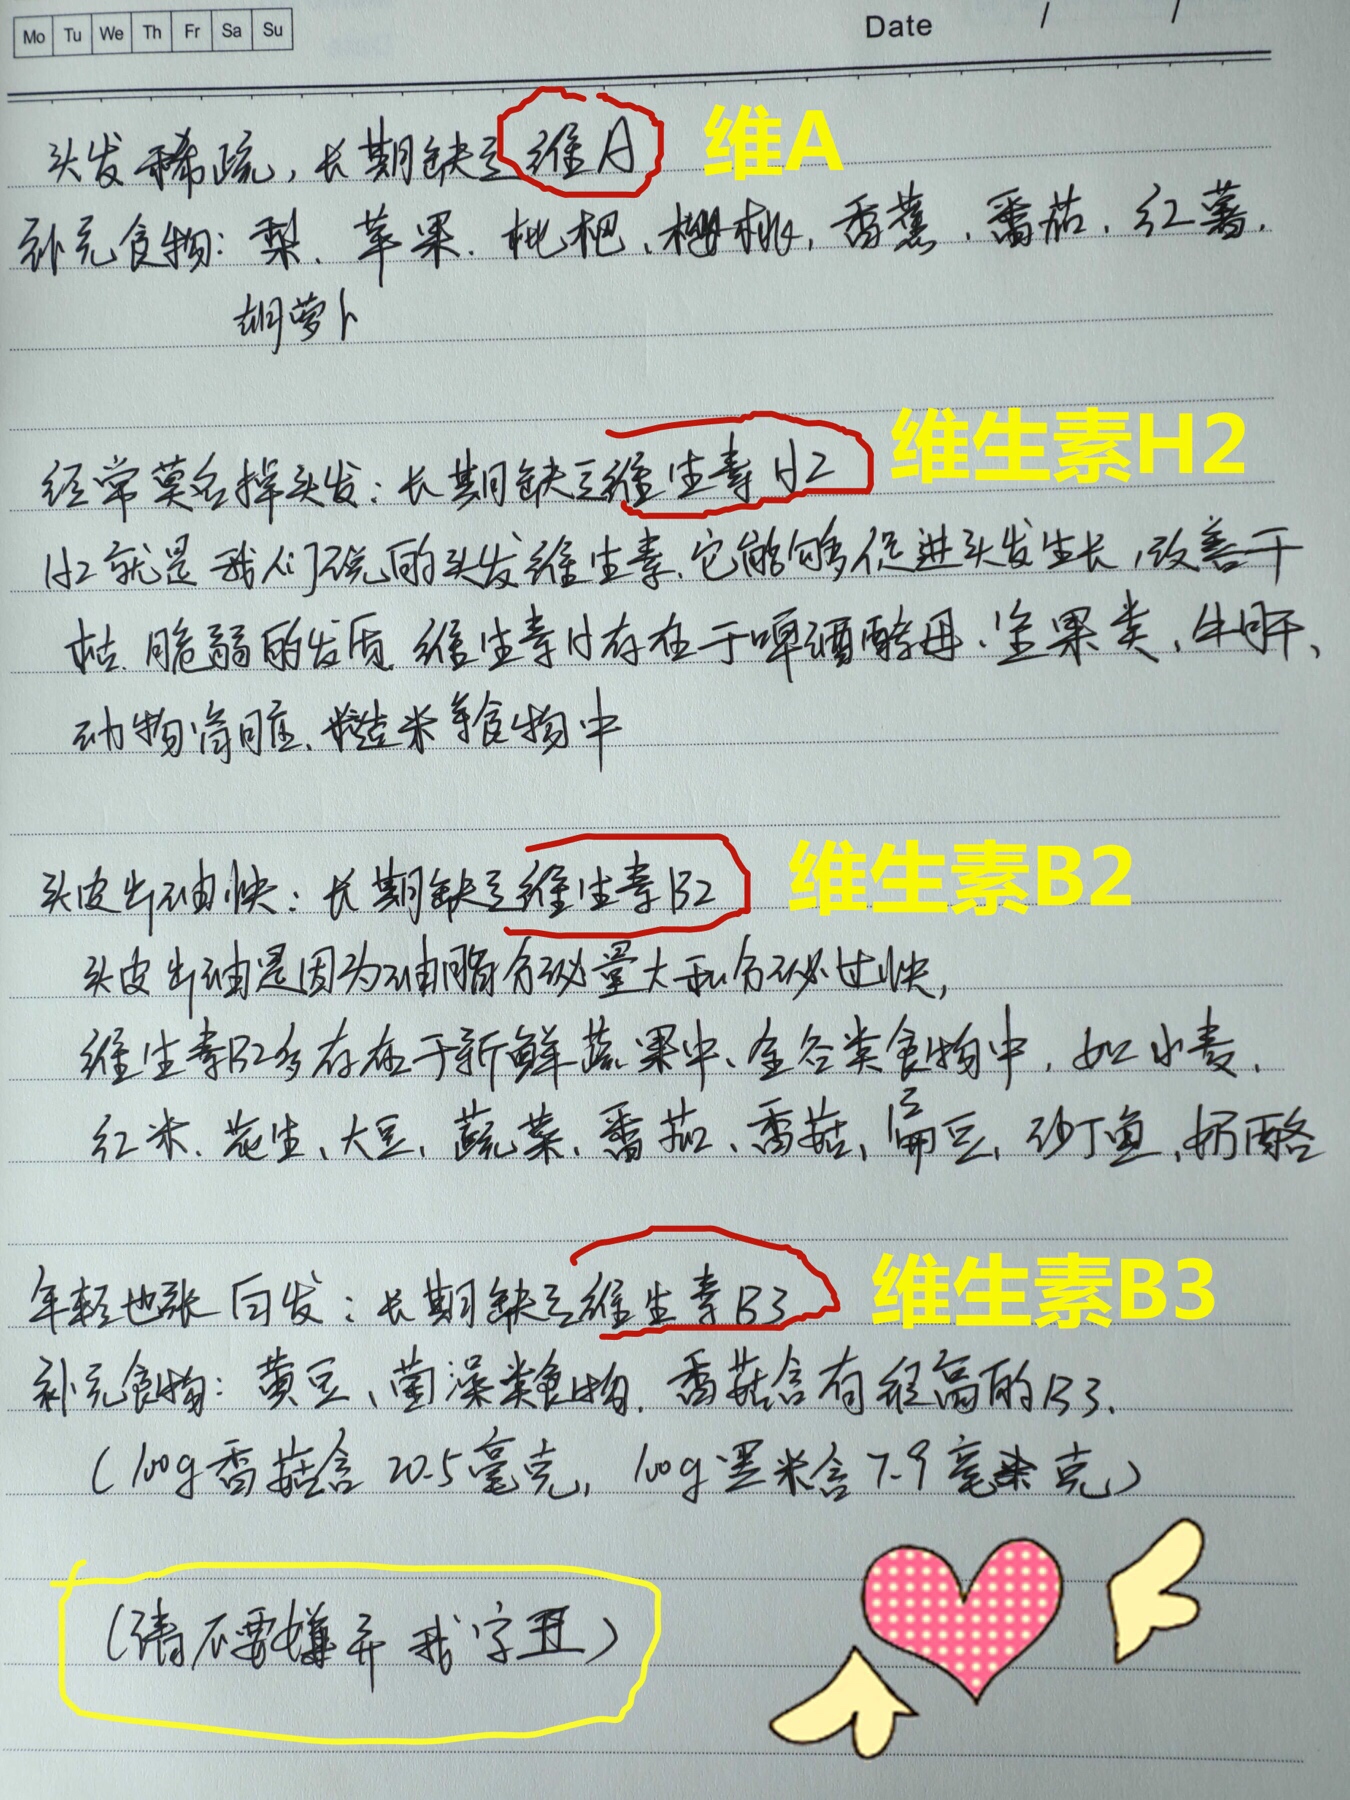 Mo Tu We Th Fr Sa Su
Date / /
头发稀疏，长期缺乏维A 维A
补充食物：梨、苹果、枇杷、樱桃、香蕉、番茄、红薯、
胡萝卜
经常莫名掉头发：长期缺乏维生素H2 维生素H2
H2就是我们说的头发维生素、它能够促进头发生长，改善干
枯、脆弱的发质、维生素H存在于啤酒酵母、坚果类、牛肝、
动物肾脏、糙米等食物中
头皮出油快：长期缺乏维生素B2 维生素B2
头皮出油是因为油脂分泌量大和分泌过快，
维生素B2多存在于新鲜蔬果中、全谷类食物中，如小麦、
红米、花生、大豆、蔬菜、番茄、香菇、扁豆、砂丁鱼、奶酪
年轻也张白发：长期缺乏维生素B3 维生素B3
补充食物：黄豆、菌藻类食物、香菇含有很高的B3、
（100g香菇含20.5毫克，100g黑米含7.9毫克）
（请不要嫌弃我字丑）